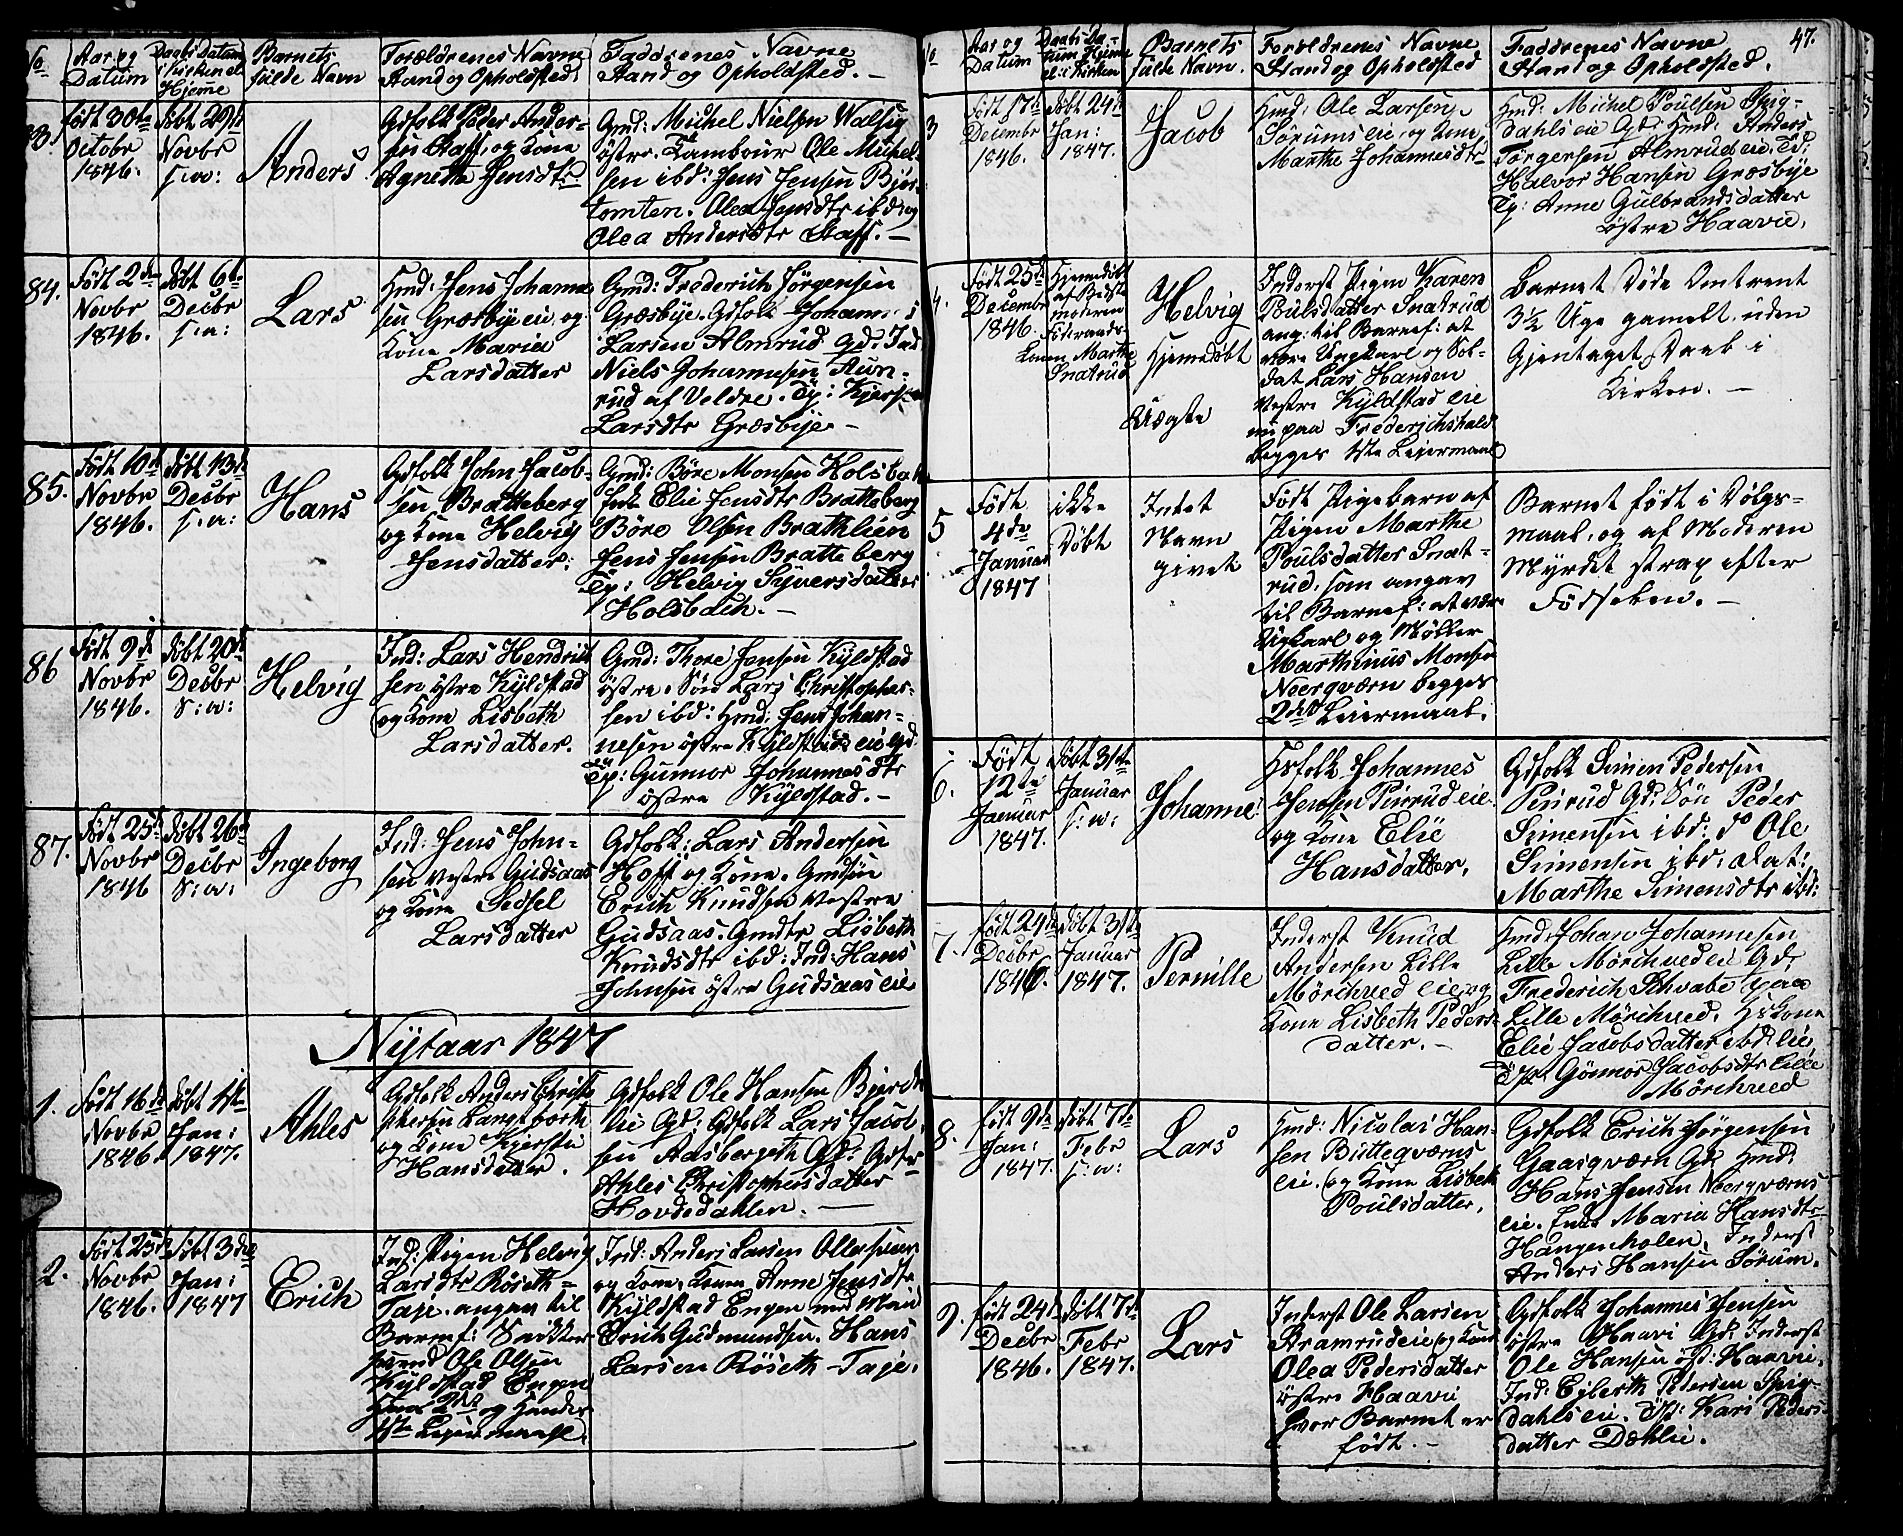 No
Aar og
Datum
Daabs Datum
i Kirken el
Hjeme
Barnets
fulde Navn
Forældrenes Navne
Stand og Opholdsted
Faddrenes Navne
Stand og Opholdsted. —
83.
født 30te
Octobr
1846.
døbt 29de
Novbr
s: a:
Anders
Gdfolk Peder Ander-
sen Staff, og Kone
Agnethe Jensdtr
Gmd: Michel Nielsen
østre. Tambour Ole Michel-
sen ibd: Jens Jensen
tomten. Olea Jensdtr ibd: og
Olea Andersdtr Staff. —
84.
Født 2den
Novbr
1846.
døbt 6te
Decbr
s: a:
Lars
Hmd: Jens Johanne-
sen Græsbye eie, og
Kone Maria
Larsdatter
Gmd: Frederich Jørgensen
Græsbye. Gdfolk Johannes
Larsen Almrud Gd: Ind
Niels Johannesen Aun-
rud af Veldre. Tp: Kjersten
Larsdtr Græsbye. —
85.
Født 10de
Novbr
1846.
døbt 13de
Decbr
s: a:
Hans
Gdfolk John Jacob-
sen Bratteberg
og Kone Helvig
Jensdatter.
Gmd: Børe Monsen Holsbach
Enke Elie Jensdtr Bratteberg
Børe Olsen Brathlien
Jens Jensen Bratteberg
Tp: Helvig Syversdatter
Holsbach. —
86
Født 9de
Novbr
1846.
døbt 20de
Decbr
s: a:
Helvig
Ind: Lars Hendrich
sen østre Kyldstad
og Kone Lisbeth
Larsdatter.
Gmd: Thore Jensen Kyldstad
østre. Søn Lars Christophes-
sen ibd: Hmd: Jens Johan-
nesen østre Kyldstads eie Gd:
Tp: Gunnor Johannesdtr
østre Kyldstad. —
87.
Født 25de
Novbr
1846
døbt 26de
Decbr
s: a:
Ingeborg
Ind: Jens John-
sen vestre Gudsaas
og Kone Sidsel
Larsdatter
Gdfolk: Lars Andersen
Hoff og Kone. Gmdsøn
Erich Knudsen vestre
Gudsaas. Gmdtr Lisbeth
Knudsdtr ibd: Ind: Hans
Johnsen østre Gudsaas eie
Nytaar 1847
1.
Født 16de
Novbr
1846.
døbt 1ste
Jan:
1847.
Ahles
Gdfolk Anders Christo
phersen
og Kone Kjersten
Hansdatter.
Gdfolk Ole Hansen
lie Gd: Gdfolk Lars Jacob-
sen Aasbergeth Gd: Gdtr
Ahles Christophersdatter
Hovdedahlen. —
2.
Født 25de
Novbr
1846.
døbt 3die
Jan:
1847
Erich
Ind: Pigen Helvig
Larsdtr Røseth-
Taje. angav til
Barnef: Snikker
svend Ole Olsen
Kyldstad Engen
Hans 2det og Hendes
1ste Leiermaal.
Ind: Anders Larsen
og Kone. Konen Anne Jensdtr
Kyldstad Engen med Man
Erich Gudmundsen. Hans
Larsen Røseth-Taje.
47.
No
Aar og
Datum
Daabs Da-
tum Hjeme
el: i Kirken
Barnets
fulde Navn.
Forældrenes Navne
Stand og Opholdsted
Faddrenes Navne
Stand og Opholdsted.
3
Født 17de
Decembr
1846.
døbt 24de
Jan:
1847.
Jacob
Hmd: Ole Larsen,
Sørums eie, og Kone
Marthe Johannesdtr
Hmd: Michel Poulsen Spig-
dahls eie Gd: Hmd: Anders
Torgersen Almrud eie. Td:
Halvor Hansen Græsbye
Tp: Anne Gulbrandsdatter
østre Haavie.
4.
Født 25de
Decembr
1846.
Hjemedøbt
af Bedste
moderen
Føderaads-
Konen Marthe
Snatrud
Helvig
Hjemedøbt
Uægte
Inderst Pigen Karen
Poulsdatter Snatrud
ang: til Barnef: at
være Ungkarl og Sol-
dat Lars Hansen
vestre Kyldstad eie
nu paa Frederichshald
begges 1ste Leiermaal
Barnet døde omtrent
3½ Uge gamelt, uden
Gjentaget Daab i
Kirken. —
5
Født
4de
Januar
1847
ikke
Døbt
Intet
Navn
givet
Født Pigebarn af
Pigen Marthe
Poulsdatter Snat-
rud, som angav
til Barnef: at være
Ugkarl og Møller
Marthinus Monsen
Neerqværn begges
2det Leiermaal.
Barnet født i Dølgs-
maal, og af Moderen
Myrdet strax efter
Fødselen. —
6.
Født
12te
Januar
1847.
døbt 31te
Januar
s: a:
Johanne
Hsfolk Johannes
Jensen Pinrud eie.
og Kone Elie
Hansdatter.
Gdfolk Simen Pedersen
Pinrud Gd: Søn Peder
Simensen ibd: do Ole
Simensen ibd: Dat:
Marthe Simensdtr ibd:
7.
født 24de
Decbr
1846.
døbt 31te
Januar
1847.
Pernille
Inderst Knud
Andersen Lille
Mörchved eie og
Kone Lisbeth Peders-
datter. —
Hmd: Johan Johannesen
Lille Mörchved eie Gd:
Frederich Schvabe paa
Lille Mörchved. Hs Kone
Elie Jacobsdatter ibd: eie
Tp: Gönnor Jacobsdtr Lille
Mörchved
8.
født 9de
Jan:
1847.
døbt 7de
Febr
s: a:
Lars
Hmd: Nicolai Han-
sen Butteqværns
eie. og Kone Lisbeth
Poulsdatter.
Gdfolk Erich Jørgensen
Gaasqværn Gd: Hmd:
Hans Jensen Neerqværns
eie. Enke Maria Hansdtr
Haugenholen. Inderst
Anders Hansen Sørum.
9.
født 24de
Decbr
1846.
døbt 7de
Febr
1847.
Lars
Inderst Ole Larsen
Bramrud eie og Kone
Olea Pedersdatter
østre Haavie
hvor Barnet er
født. —
Gdfolk Johannes Jensen
østre Haavi Gd: Inderst
Ole Hansen øst: Haavie.
Ind: Egberth Pedersen Spig-
dahls eie. Tp: Kari Peders-
datter Dæhlie.